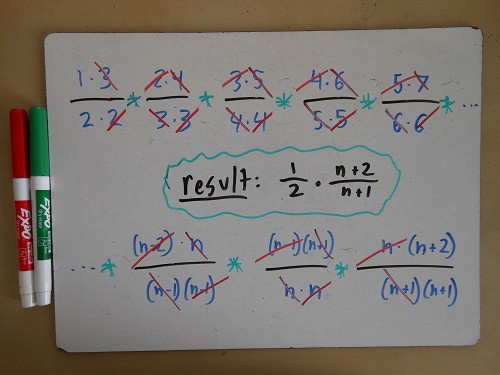 1·3 / 2·2 * 2·4 / 3·3 * 3·5 / 4·4 * 4·6 / 5·5 * 5·7 / 6·6 * ...
result: 1/2 · n+2 / n+1
... * (n-2)·n / (n-1)(n-1) * (n-1)(n+1) / n·n * n·(n+2) / (n+1)(n+1)
EXPO
EXPO